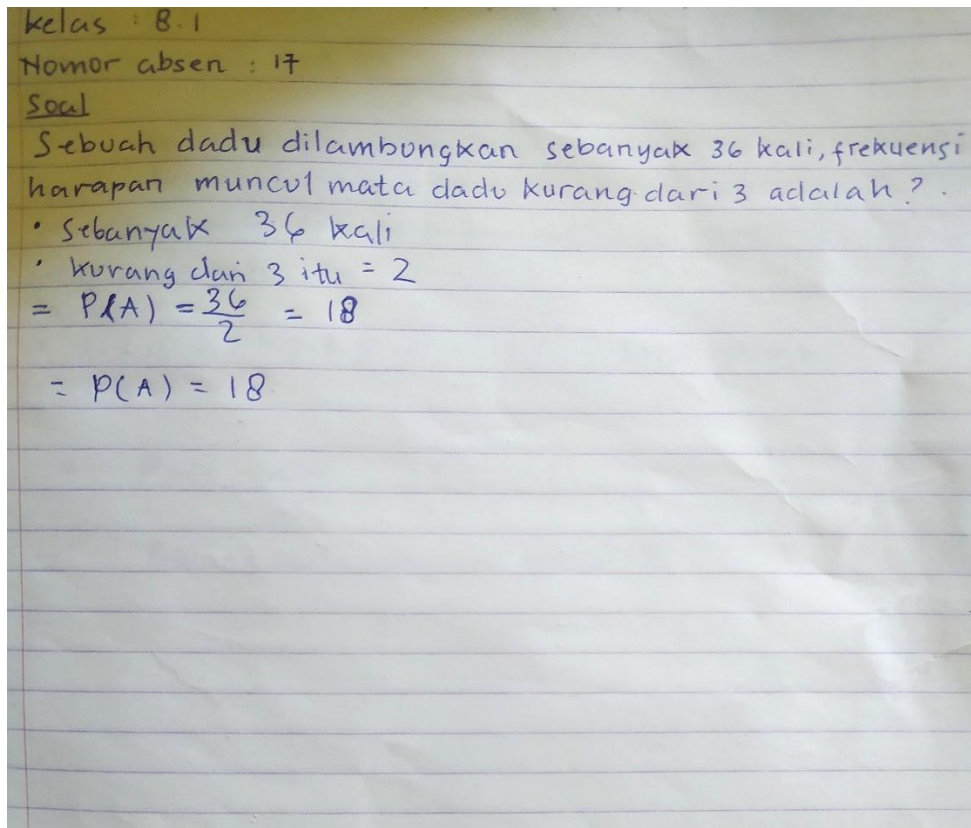 kelas : 8.1
Nomor absen : 17
Soal
Sebuah dadu dilambungkan sebanyak 36 kali, frekuensi
harapan muncul mata dadu kurang dari 3 adalah?.
• Sebanyak 36 kali
• kurang dari 3 itu = 2
= P(A) = 36/2 = 18
= P(A) = 18